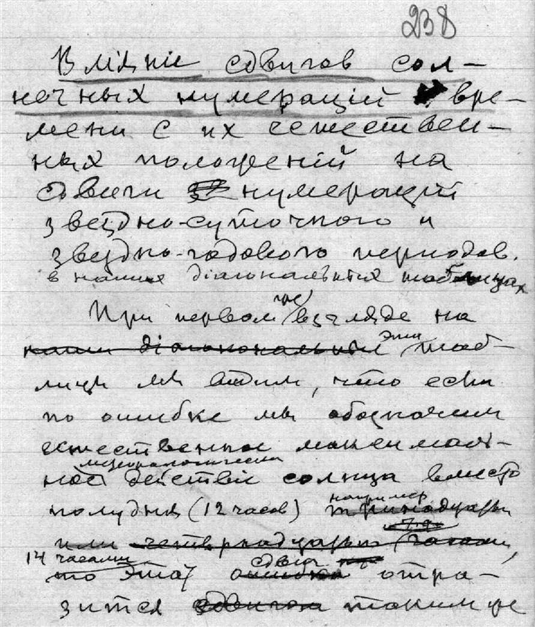 238
Вліяніе сдвигов сол-
нечных нумерацій вре-
мени с их естествен-
ных положеній на
сдвиги нумерацій
звездно-суточного и
звездно-годового періодов.
в наших діагональных таблицах
При первом же взгляде на
наши діагональныя эти таб-
лицы мы видим, что если
по ошибке мы обозначим
естественное максималь-
ное метеорологически действіе солнца вместо
полудня (12 часов) например тринадцатым
или четырнадцатым часами,
14 часами
то этот сдвиг отра-
зится таким же